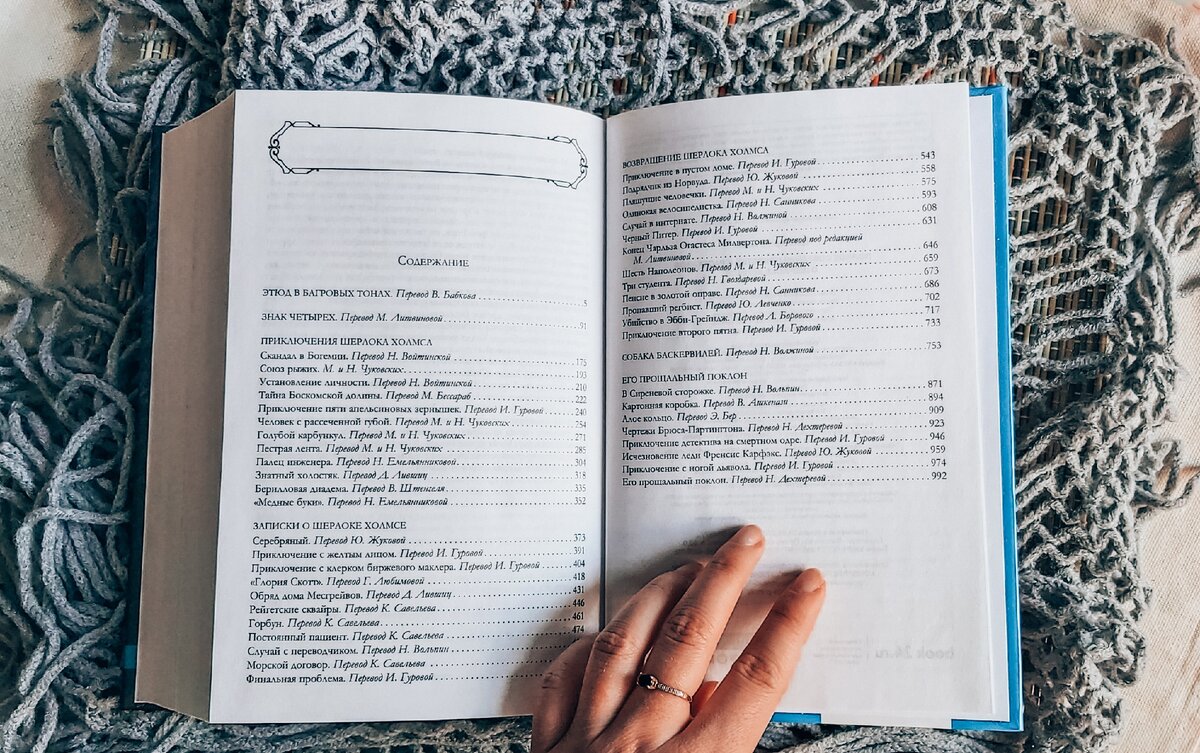 Содержание
ЭТЮД В БАГРОВЫХ ТОНАХ. Перевод В. Бабкова 5
ЗНАК ЧЕТЫРЕХ. Перевод М. Литвиновой 91
ПРИКЛЮЧЕНИЯ ШЕРЛОКА ХОЛМСА
Скандал в Богемии. Перевод Н. Войтинской 175
Союз рыжих. М. и Н. Чуковских 193
Установление личности. Перевод Н. Войтинской 210
Тайна Боскомской долины. Перевод М. Бессараб 222
Приключение пяти апельсиновых зернышек. Перевод И. Гуровой 240
Человек с рассеченной губой. Перевод М. и Н. Чуковских 254
Голубой карбункул. Перевод М. и Н. Чуковских 271
Пестрая лента. Перевод М. и Н. Чуковских 285
Палец инженера. Перевод Н. Емельянниковой 304
Знатный холостяк. Перевод Д. Лившиц 318
Берилловая диадема. Перевод В. Штенгеля 335
«Медные буки». Перевод Н. Емельянниковой 352
ЗАПИСКИ О ШЕРЛОКЕ ХОЛМСЕ
Серебряный. Перевод Ю. Жуковой 373
Приключение с желтым лицом. Перевод И. Гуровой 391
Приключение с клерком биржевого маклера. Перевод И. Гуровой 404
«Глория Скотт». Перевод Г. Любимовой 418
Обряд дома Месгрейвов. Перевод Д. Лившиц 431
Рейгетские сквайры. Перевод К. Савельева 446
Горбун. Перевод К. Савельева 461
Постоянный пациент. Перевод К. Савельева 474
Случай с переводчиком. Перевод Н. Вольпин
Морской договор. Перевод К. Савельева
Финальная проблема. Перевод И. Гуровой
ВОЗВРАЩЕНИЕ ШЕРЛОКА ХОЛМСА
Приключение в пустом доме. Перевод И. Гуровой 543
Подрядчик из Норвуда. Перевод Ю. Жуковой 558
Пляшущие человечки. Перевод М. и Н. Чуковских 575
Одинокая велосипедистка. Перевод Н. Санникова 593
Случай в интернате. Перевод Н. Волжиной 608
Черный Питер. Перевод И. Гуровой 631
Конец Чарльза Огастеса Милвертона. Перевод под редакцией
М. Литвиновой 646
Шесть Наполеонов. Перевод М. и Н. Чуковских 659
Три студента. Перевод Н. Гвоздаревой 673
Пенсне в золотой оправе. Перевод Н. Санникова 686
Пропавший регбист. Перевод Ю. Левченко 702
Убийство в Эбби-Грейндж. Перевод Л. Борового 717
Приключение второго пятна. Перевод И. Гуровой 733
СОБАКА БАСКЕРВИЛЕЙ. Перевод Н. Волжиной 753
ЕГО ПРОЩАЛЬНЫЙ ПОКЛОН
В Сиреневой сторожке. Перевод Н. Вольпин 871
Картонная коробка. Перевод В. Ашкенази 894
Алое кольцо. Перевод Э. Бер 909
Чертежи Брюса-Партингтона. Перевод Н. Дехтеревой 923
Приключение детектива на смертном одре. Перевод И. Гуровой 946
Исчезновение леди Френсис Карфэкс. Перевод Ю. Жуковой 959
Приключение с ногой дьявола. Перевод И. Гуровой 974
Его прощальный поклон. Перевод Н. Дехтеревой 992